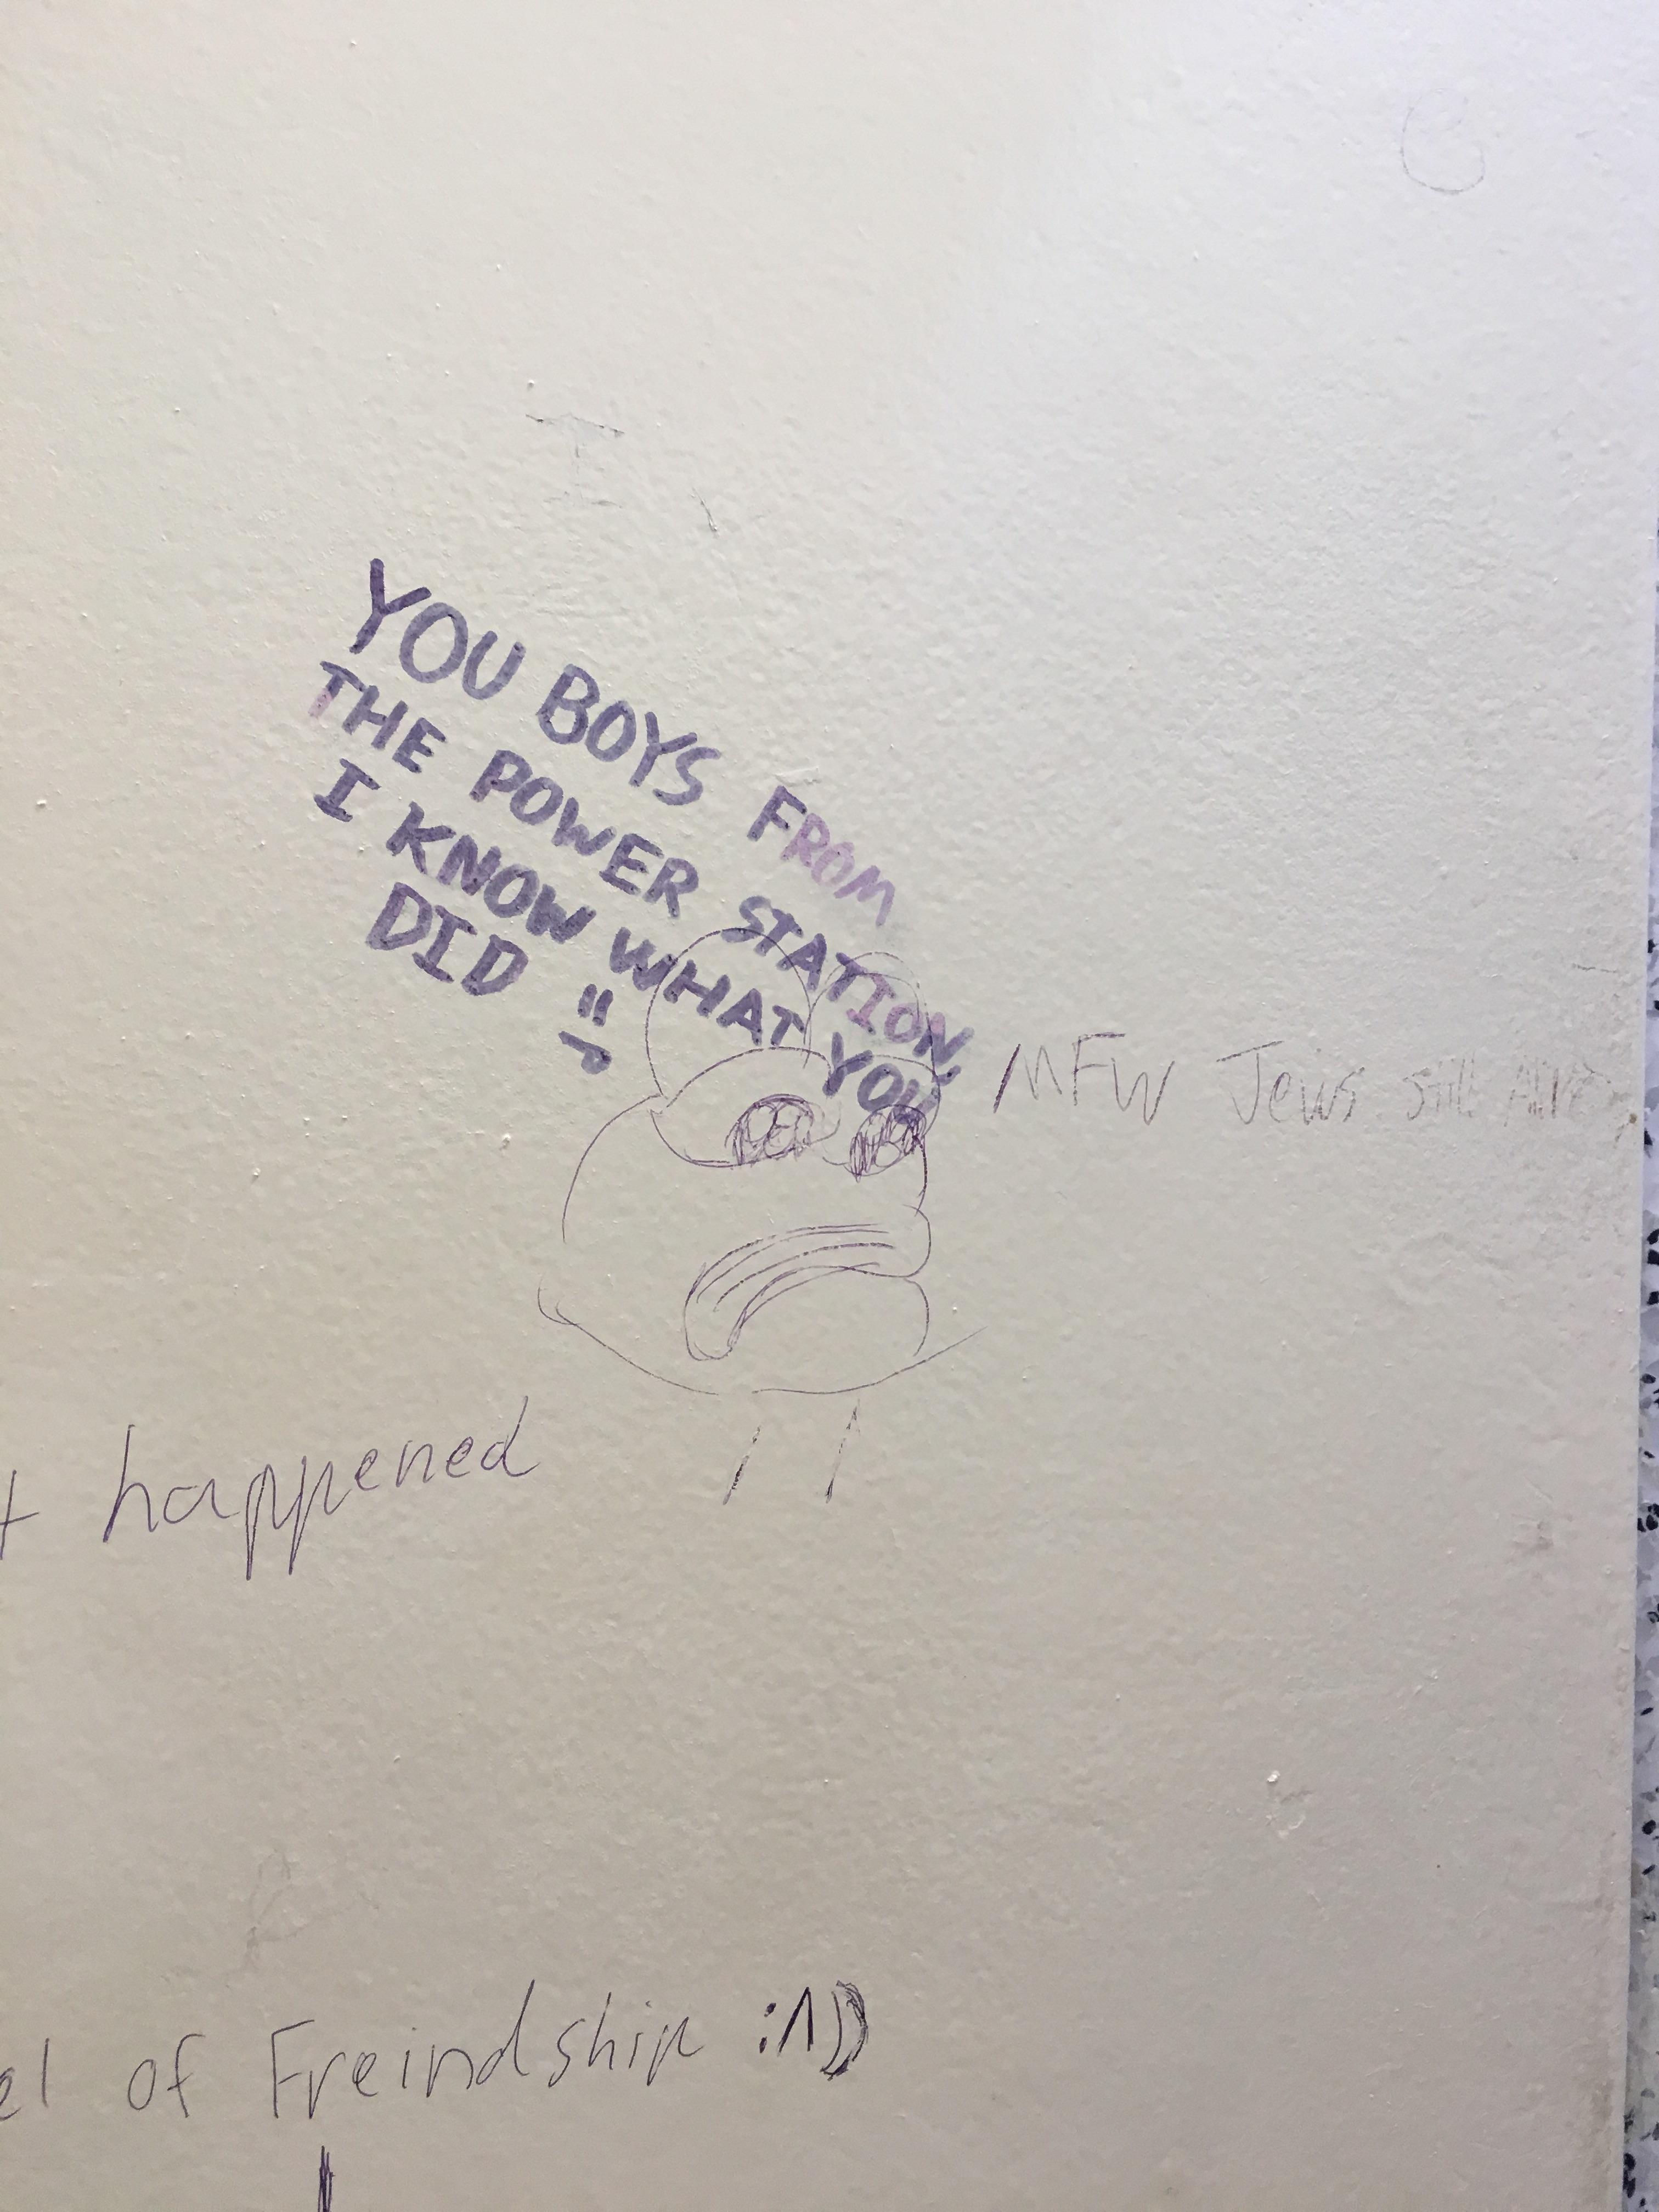 YOU BOYS FROM
THE POWER STATION,
I KNOW WHAT YOU
DID =J
MFW Jews still Alive
t happened
el of Freindship :^))